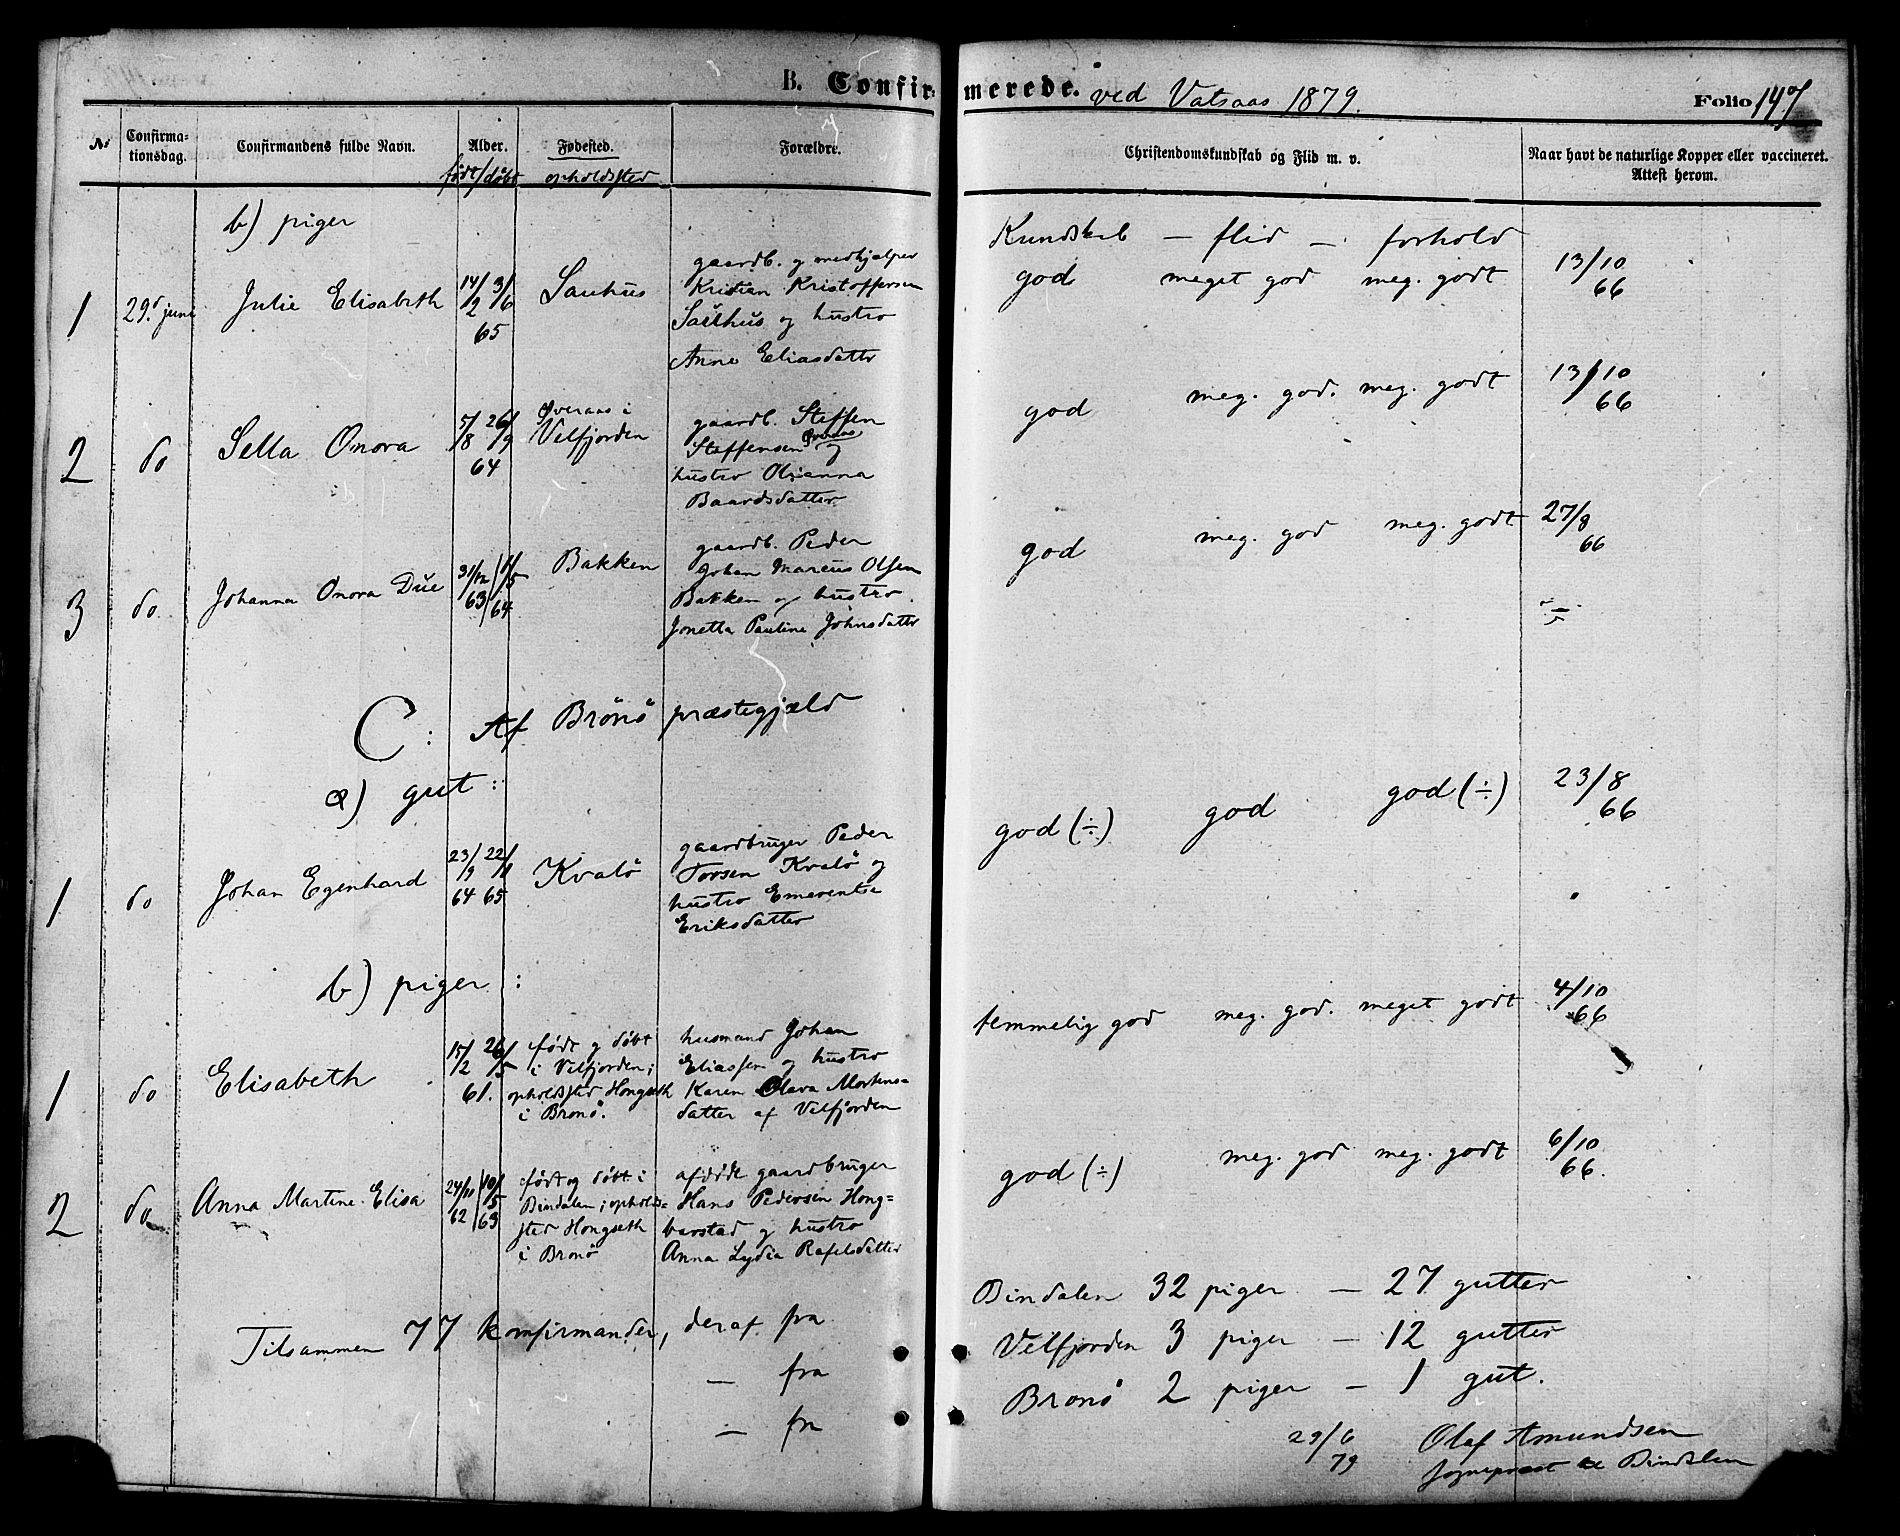 B. Confirmerede. ved Vatsaas 1879. Folio 147
№ Confirmationsdag. Confirmandens fulde Navn. Alder. Fødested. Forældre. Christendomskundskab og Flid m. v. Naar havt de naturlige Kopper eller vaccineret. Attest herom.
født/døbt opholdssted
b) piger
Kundskab – flid – forhold
1 29d juni Julie Elisabeth 14/2 3/6 65 Sauhus
gaardb. og medhjelper
Kristian Kristoffersen
Sauhus og hustro
Anne Eliasdatter
god meget god meg. godt 13/10 66
2 do Sella Onora 5/8 26/9 64 Øveraas i Velfjorden
gaardb. Steffen
Steffensen Øveraas og
hustro Olianna
Baardsdatter
god meg. god. meg. godt 13/10 66
3 do. Johanna Onora Due 31/12 63 11/5 64 Bakken
gaardb. Peder
Johan Marcus Olsen
Bakken og hustro
Jonetta Pauline Johnsdatter
god meg. god meg. godt 27/8 66
C: Af Brönö præstegjæld
a) gut:
1 do Johan Egenhard 23/9 64 22/1 65 Kvalö
gaardbruger Peder
Torsen Kvalö og
hustro Emerentse
Eriksdatter
god (÷) god god (÷) 23/8 66
b) piger:
1 do Elisabeth 15/2 26/5 61.
født og døbt
i Velfjorden;
opholdssted Hongseth
i Brønö.
husmand Johan
Eliassen og hustro
Karen Olava Mortens=
datter af Velfjorden
temmelig god meg. god. meget godt 4/10 66
2 do Anna Martine Elisa 24/11 62 10/5 63
født og døbt i
Bindalen; opholds=
sted Hongseth
i Brønö
afdøde gaardbruger
Hans Pedersen Hong=
barstad og hustro
Anna Lydia Rafelsdatter
god (÷) meg. god meg. godt 6/10 66.
Tilsammen 77 konfirmander, deraf fra Bindalen 32 piger – 27 gutter
– fra Velfjorden 3 piger – 12 gutter
– fra Brønö 2 piger – 1 gut.
29/6 79 Olaf Amundsen
sogneprest til Bindalen